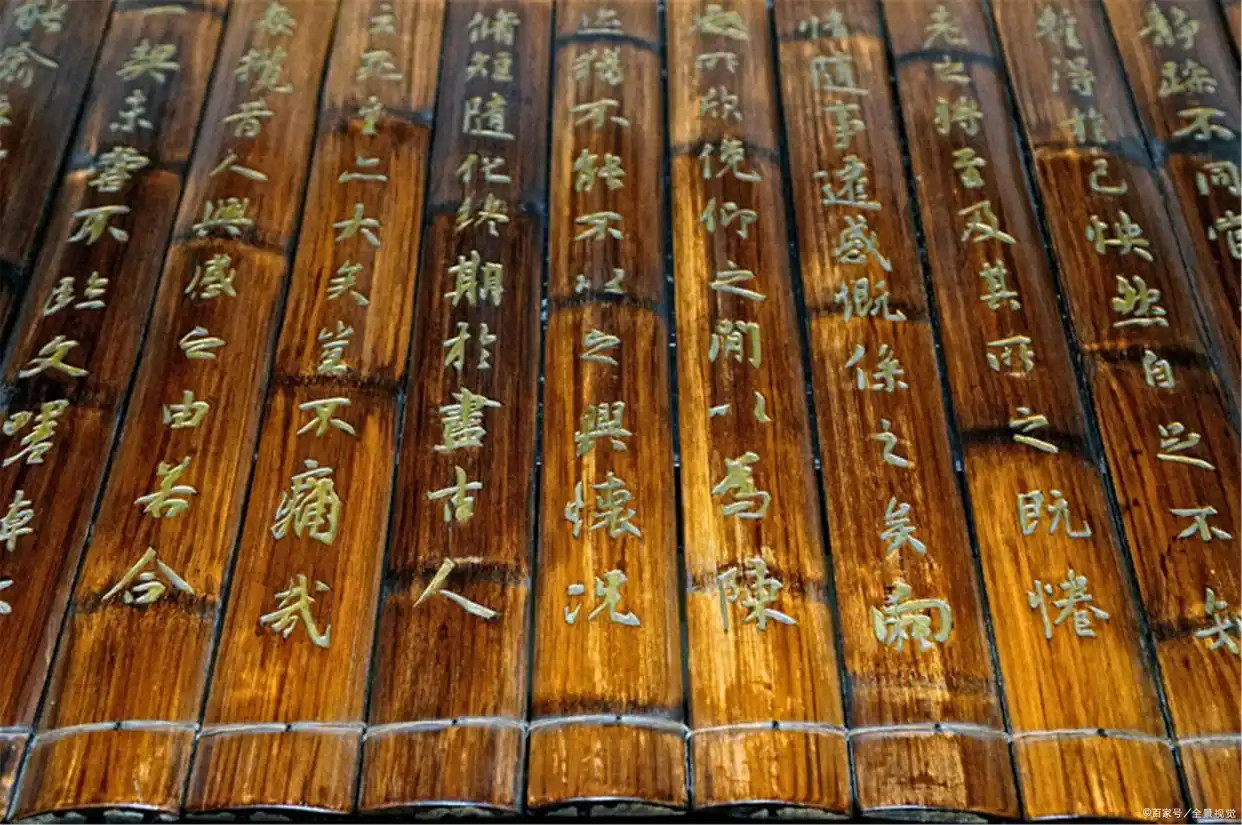 静躁不同當
蹔得於己快然自足不知
老之將至及其所之既惓
情隨事遷感慨係之矣向
之所欣俛仰之閒以為陳
迹猶不能不以之興懷況
脩短隨化終期於盡古人
云死生亦大矣豈不痛哉
每攬昔人興感之由若合
一契未嘗不臨文嗟悼不
能喻
©百家号／全景视觉